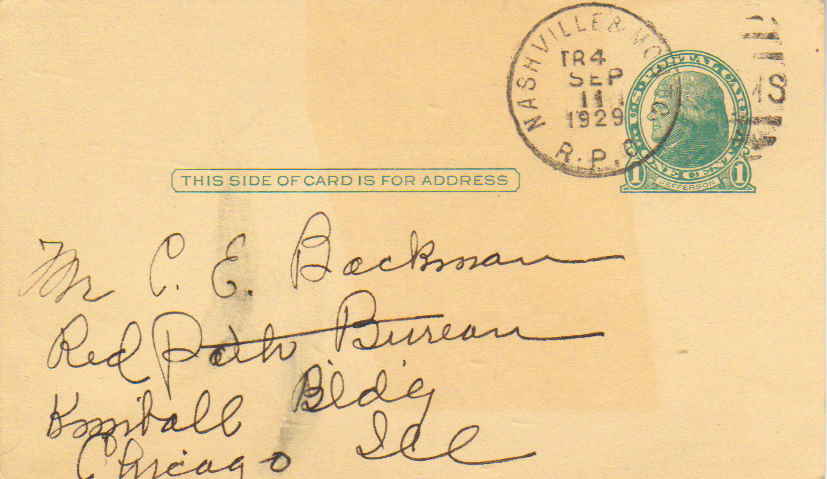 NASHVILLE & MO
TR4
SEP
11
1929
R.P.O
U.S. POSTAL CARD
ONE CENT
1 JEFFERSON 1
THIS SIDE OF CARD IS FOR ADDRESS
Mr C. E. Backman
Red Path Bureau
Kimball Bldg
Chicago Ill